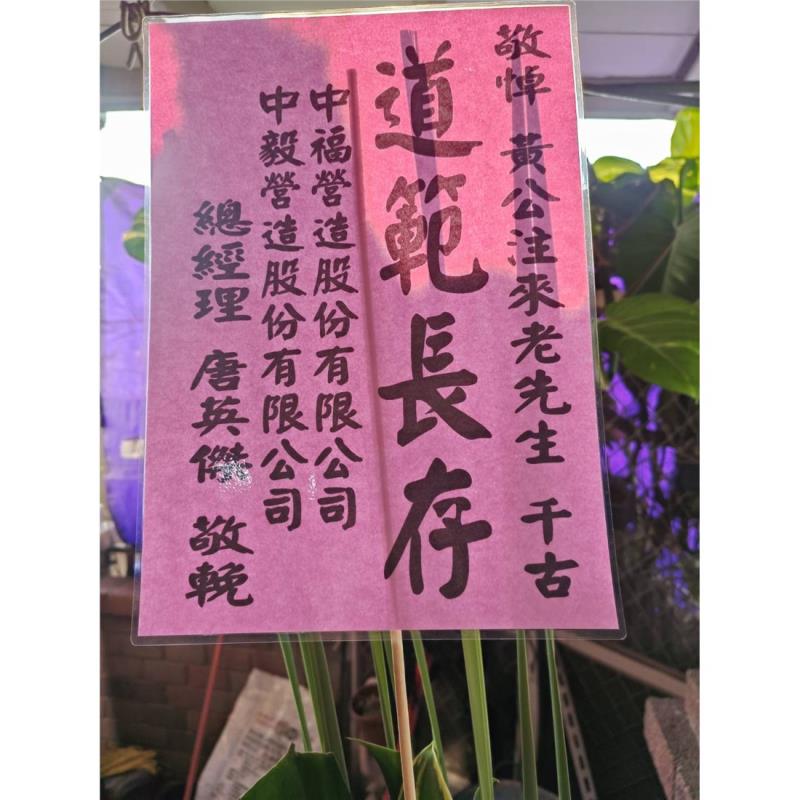 敬悼 黃公注來老先生 千古
道範長存
中福營造股份有限公司
中毅營造股份有限公司
總經理 唐英傑 敬輓